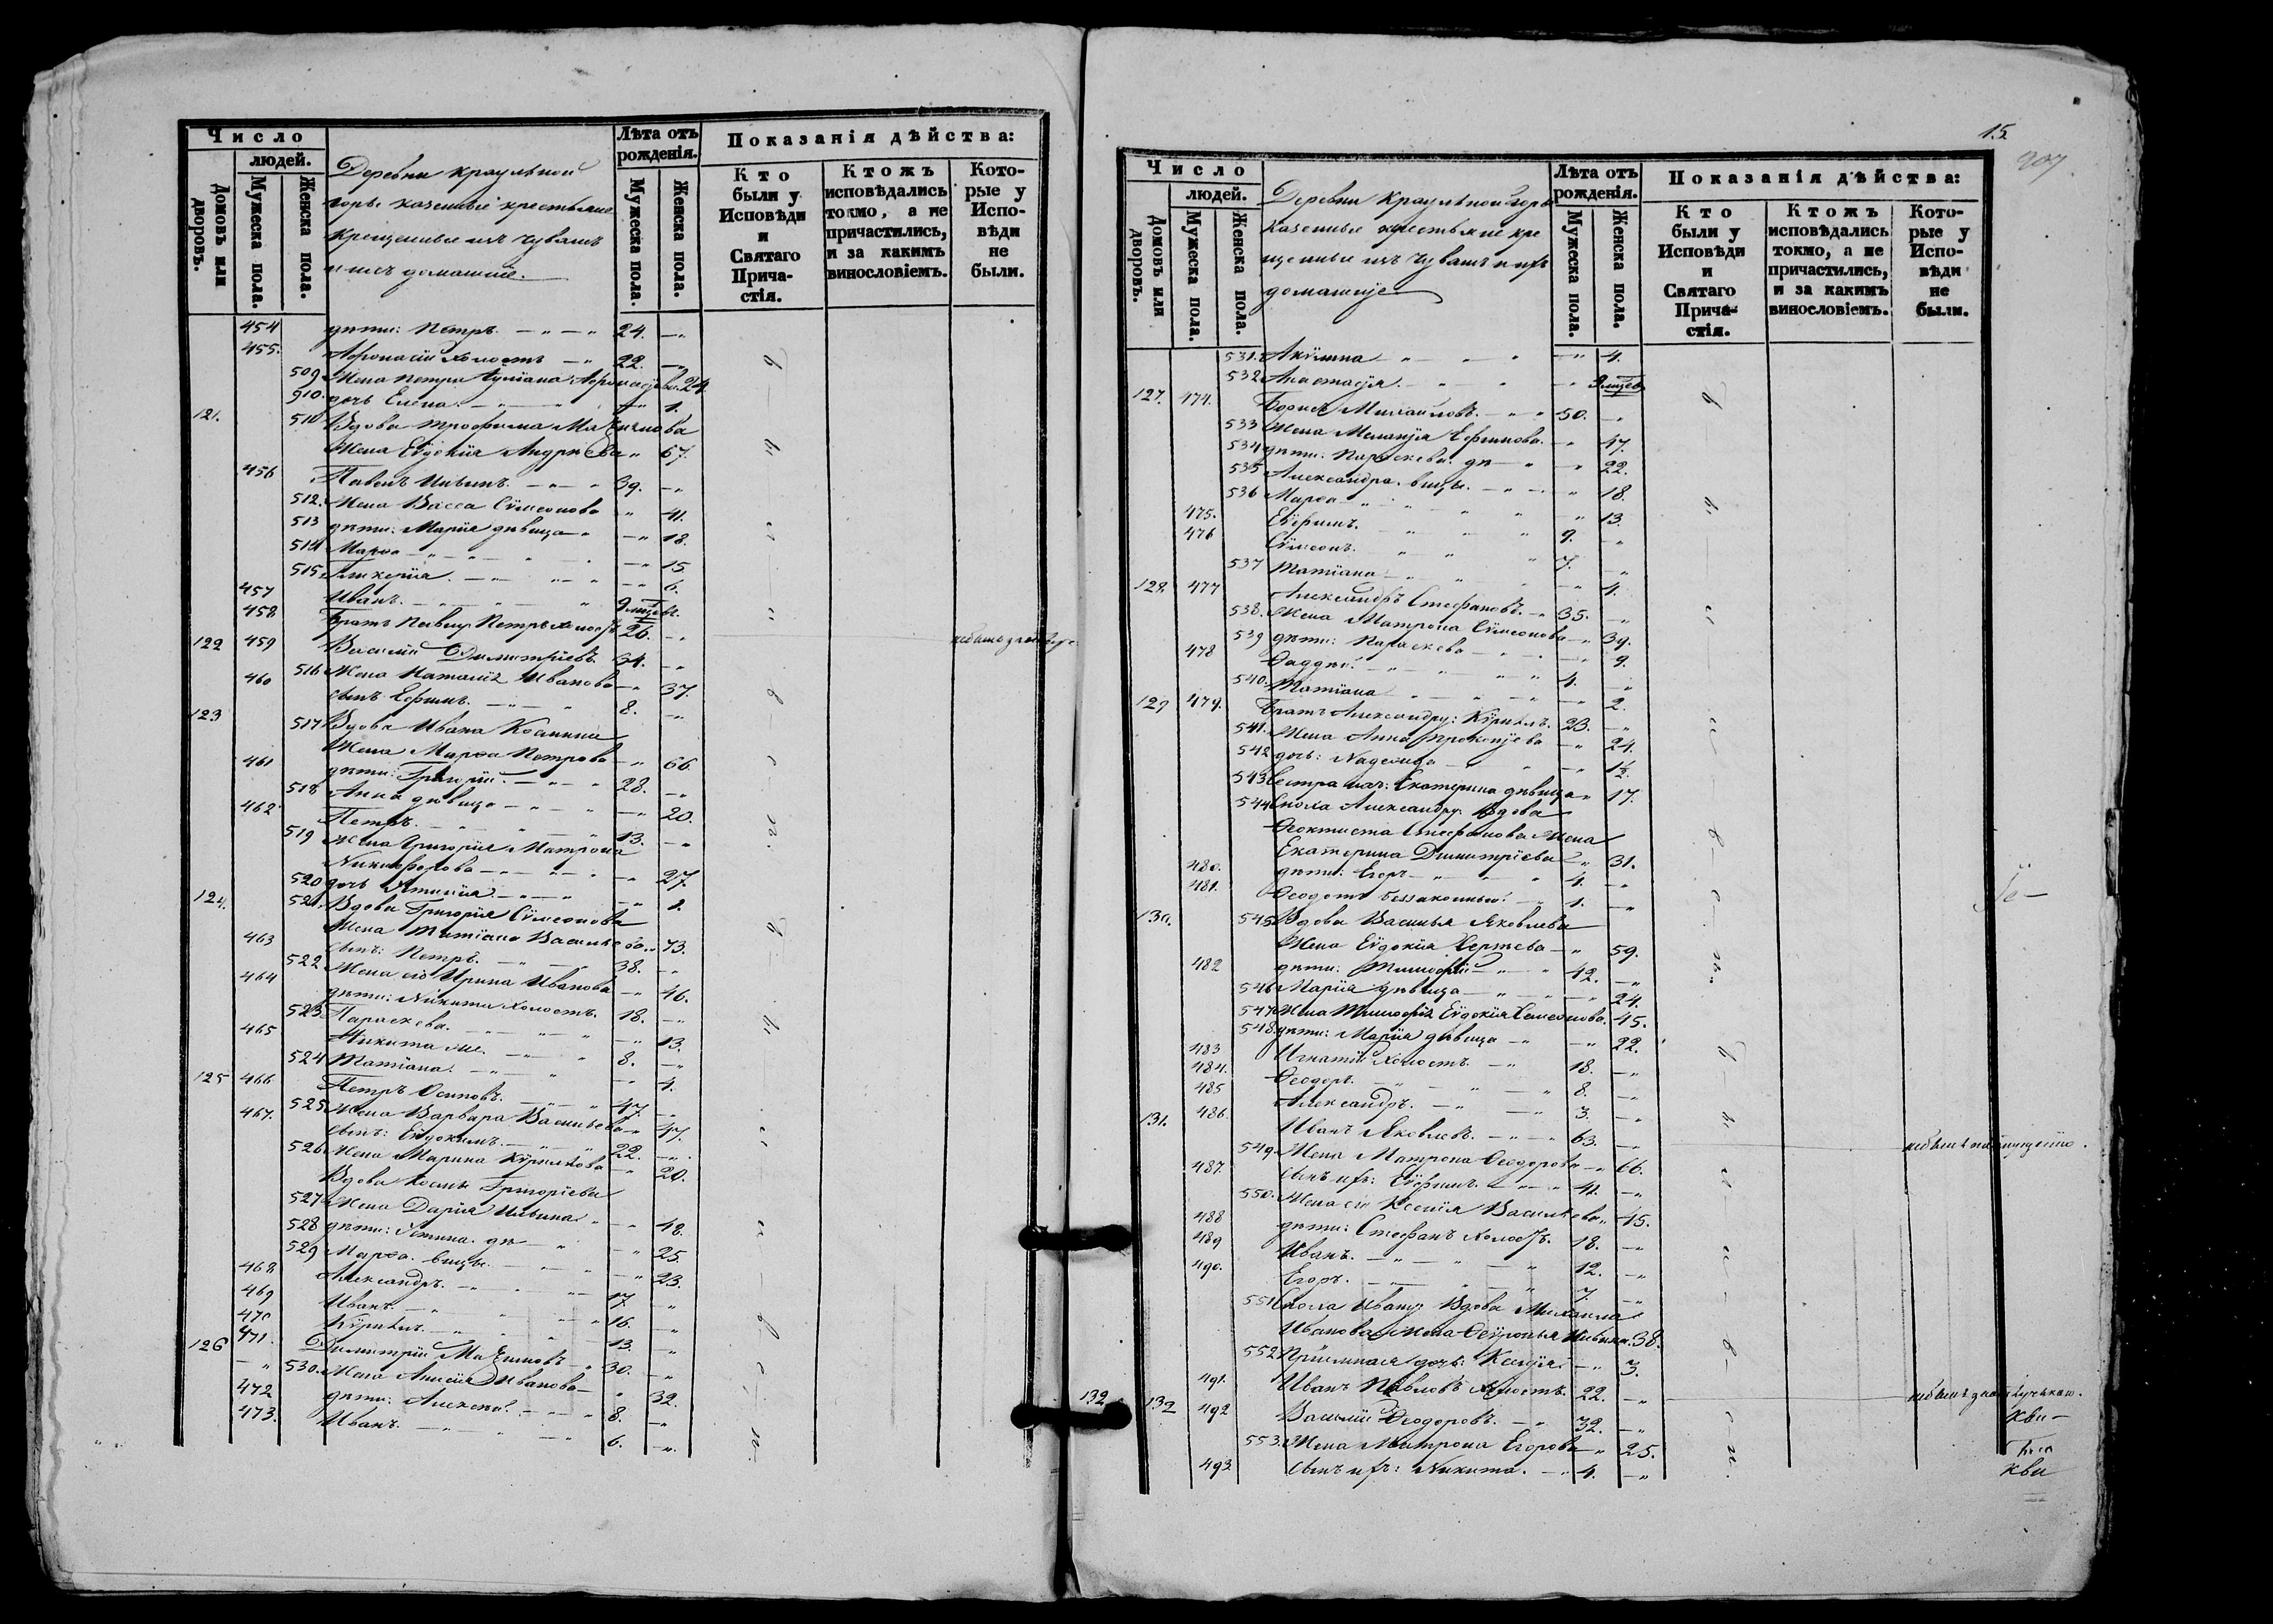 Число
людей.
Домовъ или дворовъ.
Мужеска пола.
Женска пола.
Деревни Караульной
горы казенные крестьяне
крещенные изъ чувашъ
и ихъ домашніе.
Лѣта отъ рожденія.
Мужеска пола.
Женска пола.
Показанія дѣйства:
Кто были у Исповѣди и Святаго Причастія.
Ктожъ исповѣдались токмо, а не причастились, и за какимъ винословіемъ.
Которые у Исповѣди не были.
454 дѣти: Петръ. 24.
455. Афонасій холостъ 22.
509 Жена Петра Іуліана Афонасьева 24
510. дочь Елена. 1.
121. 511 Вдова Трофима Максимова
Жена Евдокія Андреева 67.
456 Павелъ Ильинъ. 39.
512. Жена Васса Сѵмеонова 41.
513 дѣти: Марія дѣвица 18.
514 Марѳа 15
515. Гликерія. 6.
457 Иванъ. 9 мцевъ.
458 Братъ Павлу Петръ холостъ 26.
122 459 Василій Димитріевъ 34.
516 Жена Наталія Иванова 37.
460 сынъ Ефимъ. 8.
123 517 Вдова Ивана Космина
Жена Марѳа Петрова 66.
461 дѣти: Григорій. 28.
518 Анна дѣвица 20.
462 Петръ. 13.
519 Жена Григорія Матрона
Никифорова 27.
520 дочь 1.
124. 521. Вдова Григорія Сѵмеонова
Жена Татіана Васильева 73.
463 сынъ: Петръ. 38.
522 Жена его Ирина Иванова 46.
464 дѣти: Никита холостъ. 18.
523. Параскева. 13.
465 Никита 8.
524 Татіана. 4.
125 466 Петръ Осиповъ. 47.
525 Жена Варвара Васильева 47.
467. сынъ: Евдокимъ. 22.
526 Жена Марина Кѵрилова 20.
Вдова Козмы Григоріева
527 Жена Дарія Ильина 48.
528 дѣти: Устина. дѣ 25.
529 Марѳа. вицы. 23.
468 Александръ. 17.
469 Иванъ. 16.
470 Кѵрилъ. 13.
126 471. Димитрій Максимовъ 30.
530. Жена Анисія Иванова 32.
472 дѣти: Алексѣй. 8.
473. Иванъ. 6.
15
907
Число
людей.
Домовъ или дворовъ.
Мужеска пола.
Женска пола.
Деревни Караульной горы
казенные крестьяне кре
щенные изъ чувашъ и ихъ
домашніе
Лѣта отъ рожденія.
Мужеска пола.
Женска пола.
Показанія дѣйства:
Кто были у Исповѣди и Святаго Причастія.
Ктожъ исповѣдались токмо, а не причастились, и за какимъ винословіемъ.
Которые у Исповѣди не были.
531. Акѵлина 4.
532 Анастасія. 9 мцевъ
127. 474. Борисъ Михайловъ. 50.
533 Жена Меланія Ефимова. 47.
534 дѣти: Параскева. дѣ 22.
535 Александра. вицы. 18.
536 Марѳа 13.
475. Ефимъ. 9.
476 Сѵмеонъ. 7.
537 Татіана 4.
128. 477 Александръ Стефановъ. 35.
538. Жена Матрона Сѵмеонова 39.
539 дѣти: Параскева 9.
478 Ѳаддей. 4.
540. Татіана 2.
129 479. Братъ Александру: Кѵрилъ. 23.
541. Жена Анна Прокопьева 24.
542 дочь: Надежда 1½.
543 Сестра ихъ: Екатерина дѣвица 17.
544 Сноха Александру Вдова
Ѳеоктиста Стефанова Жена
Екатерина Димитріева 31.
480. дѣти: Егоръ 4.
481. Ѳеодотъ беззаконный 1.
130. 545 Вдова Василья Яковлева
Жена Евдокія Сергеева 59.
482 дѣти: Тимофѣй 42.
546 Марія дѣвица 24.
547 Жена Тимофѣя Евдокія Семенова. 45.
548. дѣти: Марія дѣвица 22.
483 Игнатій холостъ. 18.
484. Ѳеодоръ. 8.
485 Александръ. 3.
131. 486. Иванъ Яковлевъ. 63.
549. Жена Матрона Ѳеодорова 66.
487. сынъ ихъ: Ефимъ. 41.
550. Жена его Ксенія Васильева 45.
488 дѣти: Стефанъ холостъ. 18.
489 Иванъ. 12.
490. Егоръ. 7.
551 Сноха Ивану Вдова Михаила
Иванова Жена Ѳеѵронья Ильина. 38.
552 Пріемная дочь: Ксенія. 3.
491. Иванъ Павловъ холостъ. 22.
132 132 492 Василій Ѳеодоровъ. 32.
553. Жена Матрона Егорова 25.
493 сынъ ихъ: Никита. 4.